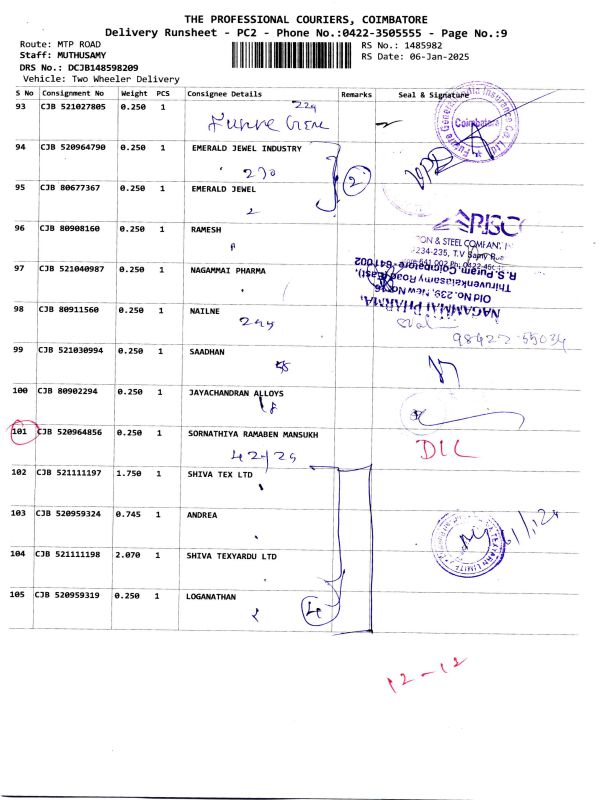 THE PROFESSIONAL COURIERS, COIMBATORE
Delivery Runsheet - PC2 - Phone No.:0422-3505555 - Page No.:9
Route: MTP ROAD
RS No.: 1485982
Staff: MUTHUSAMY
RS Date: 06-Jan-2025
DRS No.: DCJB148598209
Vehicle: Two Wheeler Delivery
S No Consignment No Weight PCS Consignee Details Remarks Seal & Signature
93 CJB 521027805 0.250 1
229
Coimbatore
94 CJB 520964790 0.250 1 EMERALD JEWEL INDUSTRY
230
2
95 CJB 80677367 0.250 1 EMERALD JEWEL
2
96 CJB 80908160 0.250 1 RAMESH
ON & STEEL COMPANY
234-235, T.V Samy
97 CJB 521040987 0.250 1 NAGAMMAI PHARMA
R.S. Puram, Coimbatore-641002
Thiruvenkatasamy Road (East),
Old No.239, New No.
NAGAMMAI PHARMA,
98 CJB 80911560 0.250 1 NAILNE
99 CJB 521030994 0.250 1 SAADHAN
100 CJB 80902294 0.250 1 JAYACHANDRAN ALLOYS
101 CJB 520964856 0.250 1 SORNATHIYA RAMABEN MANSUKH
DIL
102 CJB 521111197 1.750 1 SHIVA TEX LTD
103 CJB 520959324 0.745 1 ANDREA
104 CJB 521111198 2.070 1 SHIVA TEXYARDU LTD
105 CJB 520959319 0.250 1 LOGANATHAN
4
12-12